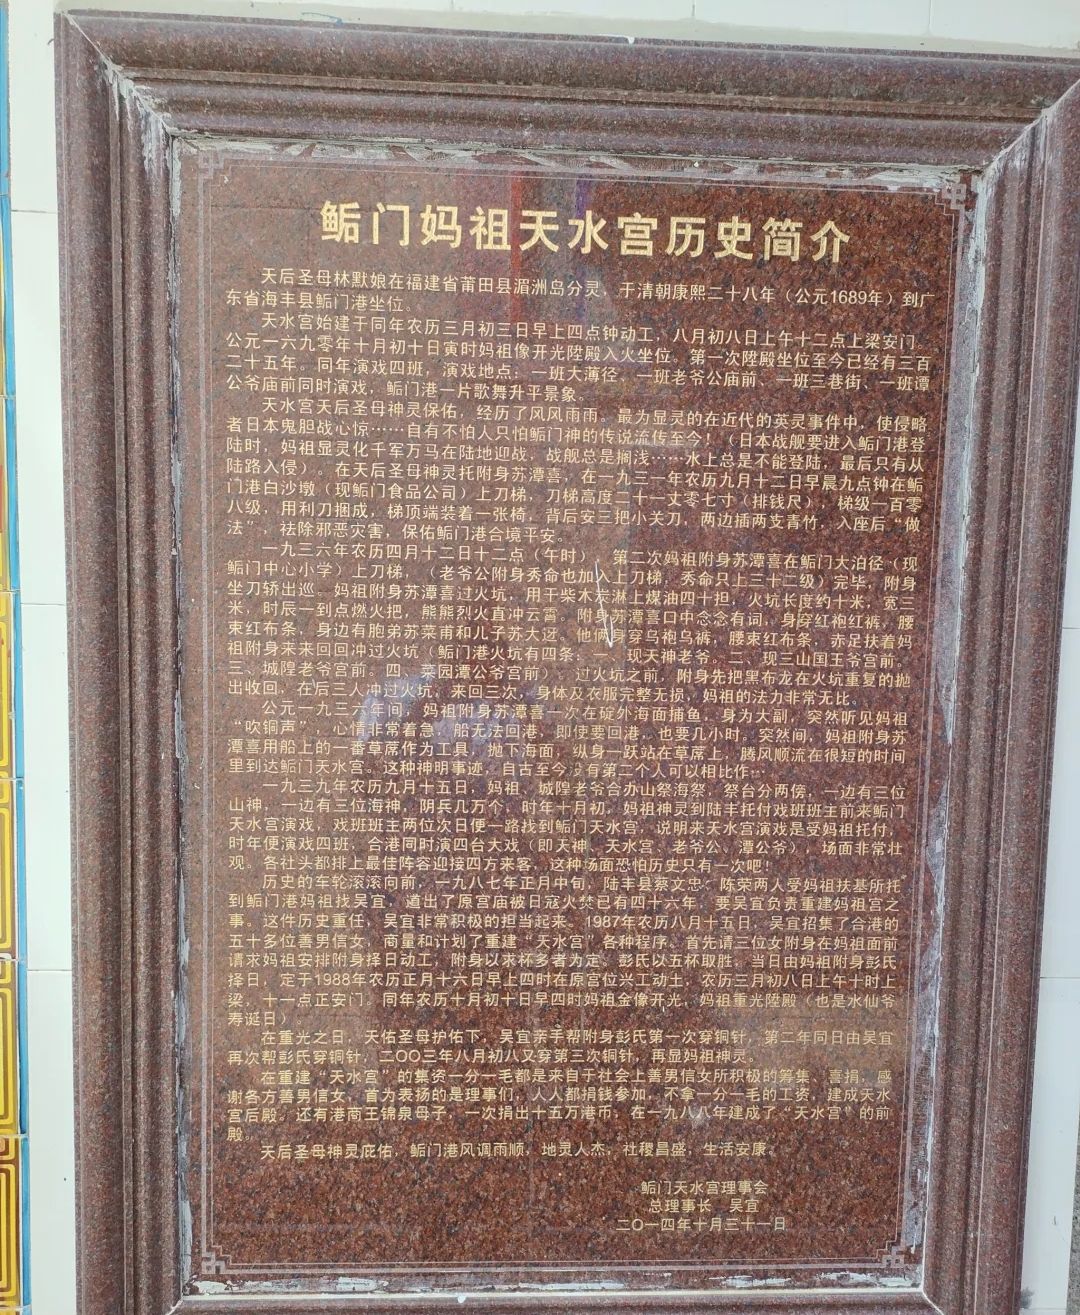 鲘门妈祖天水宫历史简介
天后圣母林默娘在福建省莆田县湄洲岛分灵，于清朝康熙二十八年（公元1689年）到广
东省海丰县鲘门港坐位。
天水宫始建于同年农历三月初三日早上四点钟动工，八月初八日上午十二点上梁安门，
公元一六九零年十月初十日寅时妈祖像开光陞殿入火坐位。第一次陞殿坐位至今已经有三百
二十五年。同年演戏四班，演戏地点：一班大薄径、一班老爷公庙前、一班三巷街、一班谭
公爷庙前同时演戏，鲘门港一片歌舞升平景象。
天水宫天后圣母神灵保佑，经历了风风雨雨。最为显灵的在近代的英灵事件中，使侵略
者日本鬼胆战心惊……自有不怕人只怕鲘门神的传说流传至今！（日本战舰要进入鲘门港登
陆时，妈祖显灵化千军万马在陆地迎战，战舰总是搁浅……水上总是不能登陆，最后只有从
陆路入侵）。在天后圣母神灵托附身苏潭喜，在一九三一年农历九月十二日早晨九点钟在鲘
门港白沙墩（现鲘门食品公司）上刀梯，刀梯高度二十一丈零七寸（排钱尺），梯级一百零
八级，用利刀捆成，梯顶端装着一张椅，背后安三把小关刀，两边插两支青竹，入座后“做
法”，祛除邪恶灾害，保佑鲘门港合境平安。
一九三六年农历四月十二日十二点（午时），第二次妈祖附身苏潭喜在鲘门大泊径（现
鲘门中心小学）上刀梯，（老爷公附身秀命也加入上刀梯，秀命只上三十二级）完毕，附身
坐刀轿出巡。妈祖附身苏潭喜过火坑，用干柴木炭淋上煤油四十担，火坑长度约十米，宽三
米，时辰一到点燃火把，熊熊烈火直冲云霄。附身苏潭喜口中念念有词，身穿红袍红裤，腰
束红布条，身边有胞弟苏菜甫和儿子苏大迓，他俩身穿乌袍乌裤，腰束红布条，赤足扶着妈
祖附身来来回回冲过火坑（鲘门港火坑有四条：一、现天神老爷。二、现三山国王爷宫前。
三、城隍老爷宫前。四、菜园潭公爷宫前）。过火坑之前，附身先把黑布龙在火坑重复的抛
出收回，在后三人冲过火坑，来回三次，身体及衣服完整无损，妈祖的法力非常无比。
公元一九三六年间，妈祖附身苏潭喜一次在碇外海面捕鱼，身为大副，突然听见妈祖
“吹铜声”，心情非常着急，船无法回港，即使要回港，也要几小时。突然间，妈祖附身苏
潭喜用船上的一番草席作为工具，抛下海面，纵身一跃站在草席上，腾风顺流在很短的时间
里到达鲘门天水宫。这种神明事迹，自古至今没有第二个人可以相比作…
一九三九年农历九月十五日，妈祖、城隍老爷合办山祭海祭，祭台分两傍，一边有三位
山神，一边有三位海神，阴兵几万个，时年十月初，妈祖神灵到陆丰托付戏班班主前来鲘门
天水宫演戏，戏班班主两位次日便一路找到鲘门天水宫，说明来天水宫演戏是受妈祖托付，
时年便演戏四班，合港同时演四台大戏（即天神、天水宫、老爷公、潭公爷），场面非常壮
观。各社头都排上最佳阵容迎接四方来客，这种场面恐怕历史只有一次吧！
历史的车轮滚滚向前，一九八七年正月中旬，陆丰县蔡文忠、陈荣两人受妈祖扶基所托
到鲘门港妈祖找吴宜，道出了原宫庙被日寇火焚已有四十六年，要吴宜负责重建妈祖宫之
事。这件历史重任，吴宜非常积极的担当起来。1987年农历八月十五日，吴宜招集了合港的
五十多位善男信女，商量和计划了重建“天水宫”各种程序、首先请三位女附身在妈祖面前
请求妈祖安排附身择日动工，附身以求杯多者为定。彭氏以五杯取胜，当日由妈祖附身彭氏
择日，定于1988年农历正月十六日早上四时在原宫位兴工动土，农历三月初八日上午十时上
梁，十一点正安门。同年农历十月初十日早四时妈祖金像开光，妈祖重光陞殿（也是水仙爷
寿诞日）
在重光之日，天佑圣母护佑下，吴宜亲手帮附身彭氏第一次穿铜针，第二年同日由吴宜
再次帮彭氏穿铜针，二〇〇三年八月初八又穿第三次铜针，再显妈祖神灵。
在重建“天水宫”的集资一分一毛都是来自于社会上善男信女所积极的筹集、喜捐，感
谢各方善男信女，首为表扬的是理事们，人人都捐钱参加，不拿一分一毛的工资，建成天水
宫后殿。还有港商王锦泉母子，一次捐出十五万港币，在一九八八年建成了“天水宫”的前
殿。
天后圣母神灵庇佑，鲘门港风调雨顺，地灵人杰，社稷昌盛，生活安康。
鲘门天水宫理事会
总理事长 吴宜
二〇一四年十月三十一日